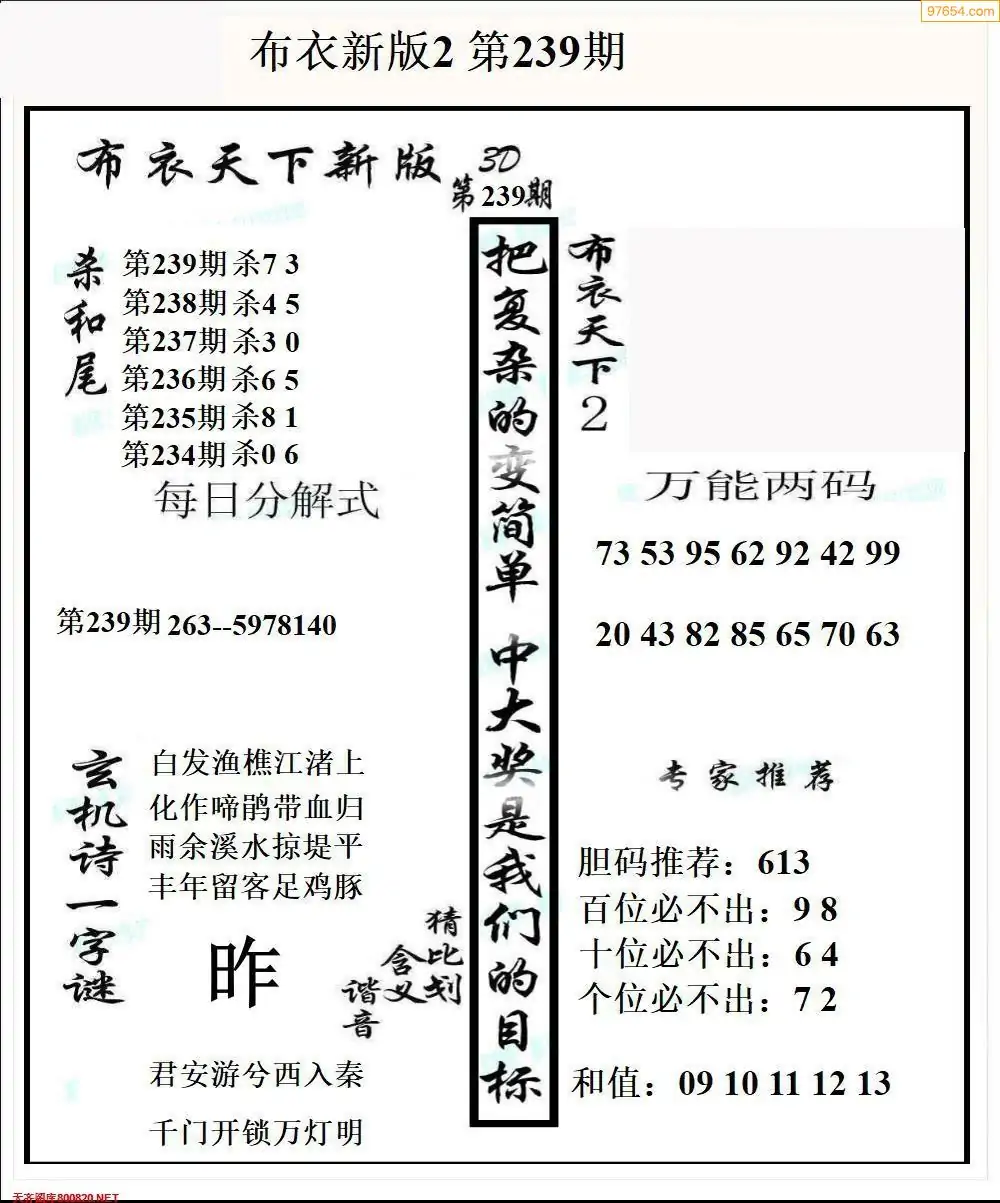 97654.com
布衣新版2 第239期
布衣天下新版
3D
第239期
杀和尾
第239期 杀7 3
第238期 杀4 5
第237期 杀3 0
第236期 杀6 5
第235期 杀8 1
第234期 杀0 6
每日分解式
第239期 263--5978140
玄机诗一字谜
白发渔樵江渚上
化作啼鹃带血归
雨余溪水掠堤平
丰年留客足鸡豚
昨
猜比划
含义
谐音
君安游兮西入秦
千门开锁万灯明
把复杂的变简单 中大奖是我们的目标
布衣天下2
万能两码
73 53 95 62 92 42 99
20 43 82 85 65 70 63
专家推荐
胆码推荐：613
百位必不出：9 8
十位必不出：6 4
个位必不出：7 2
和值：09 10 11 12 13
天齐图库800820.NET